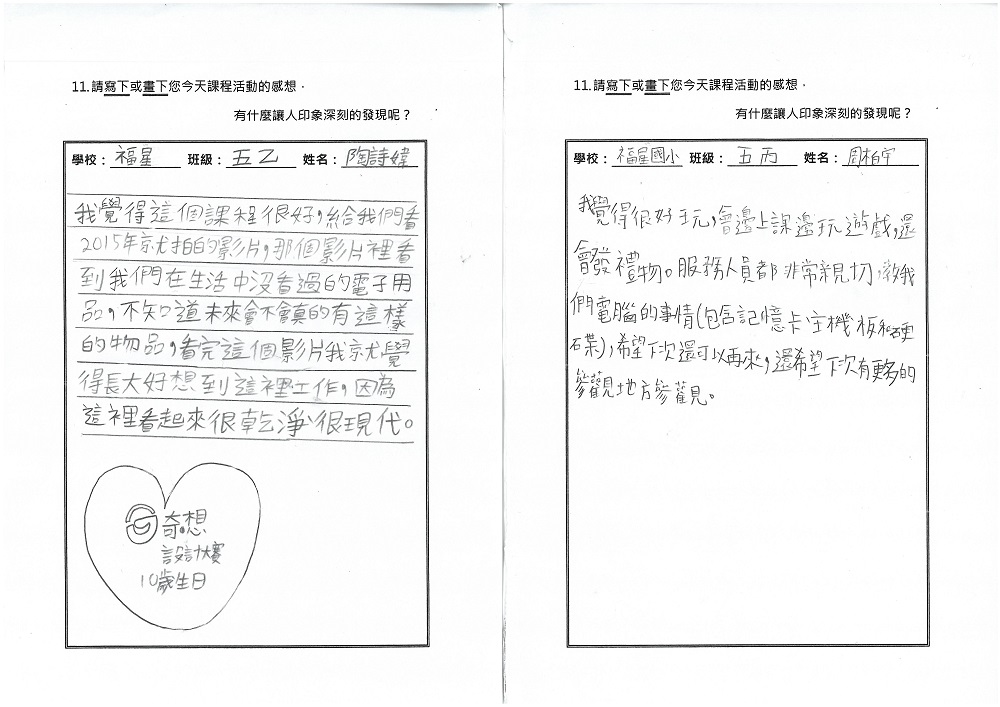 11.請寫下或畫下您今天課程活動的感想．
有什麼讓人印象深刻的發現呢？
學校：福星 班級：五乙 姓名：陶詩婕
我覺得這個課程很好，給我們看
2015年就拍的影片，那個影片裡看
到我們在生活中沒看過的電子用
品，不知道未來會不會真的有這樣
的物品，看完這個影片我就覺
得長大好想到這裡工作，因為
這裡看起來很乾淨、很現代。
奇想
設計大賽
10歲生日
11.請寫下或畫下您今天課程活動的感想．
有什麼讓人印象深刻的發現呢？
學校：福星國小 班級：五丙 姓名：周柏宇
我覺得很好玩，會邊上課邊玩遊戲，還
會發禮物。服務人員都非常親切，教我
們電腦的事情(包含記憶卡、主機板和硬
碟)，希望下次還可以再來，還希望下次有更多的
參觀地方參觀。